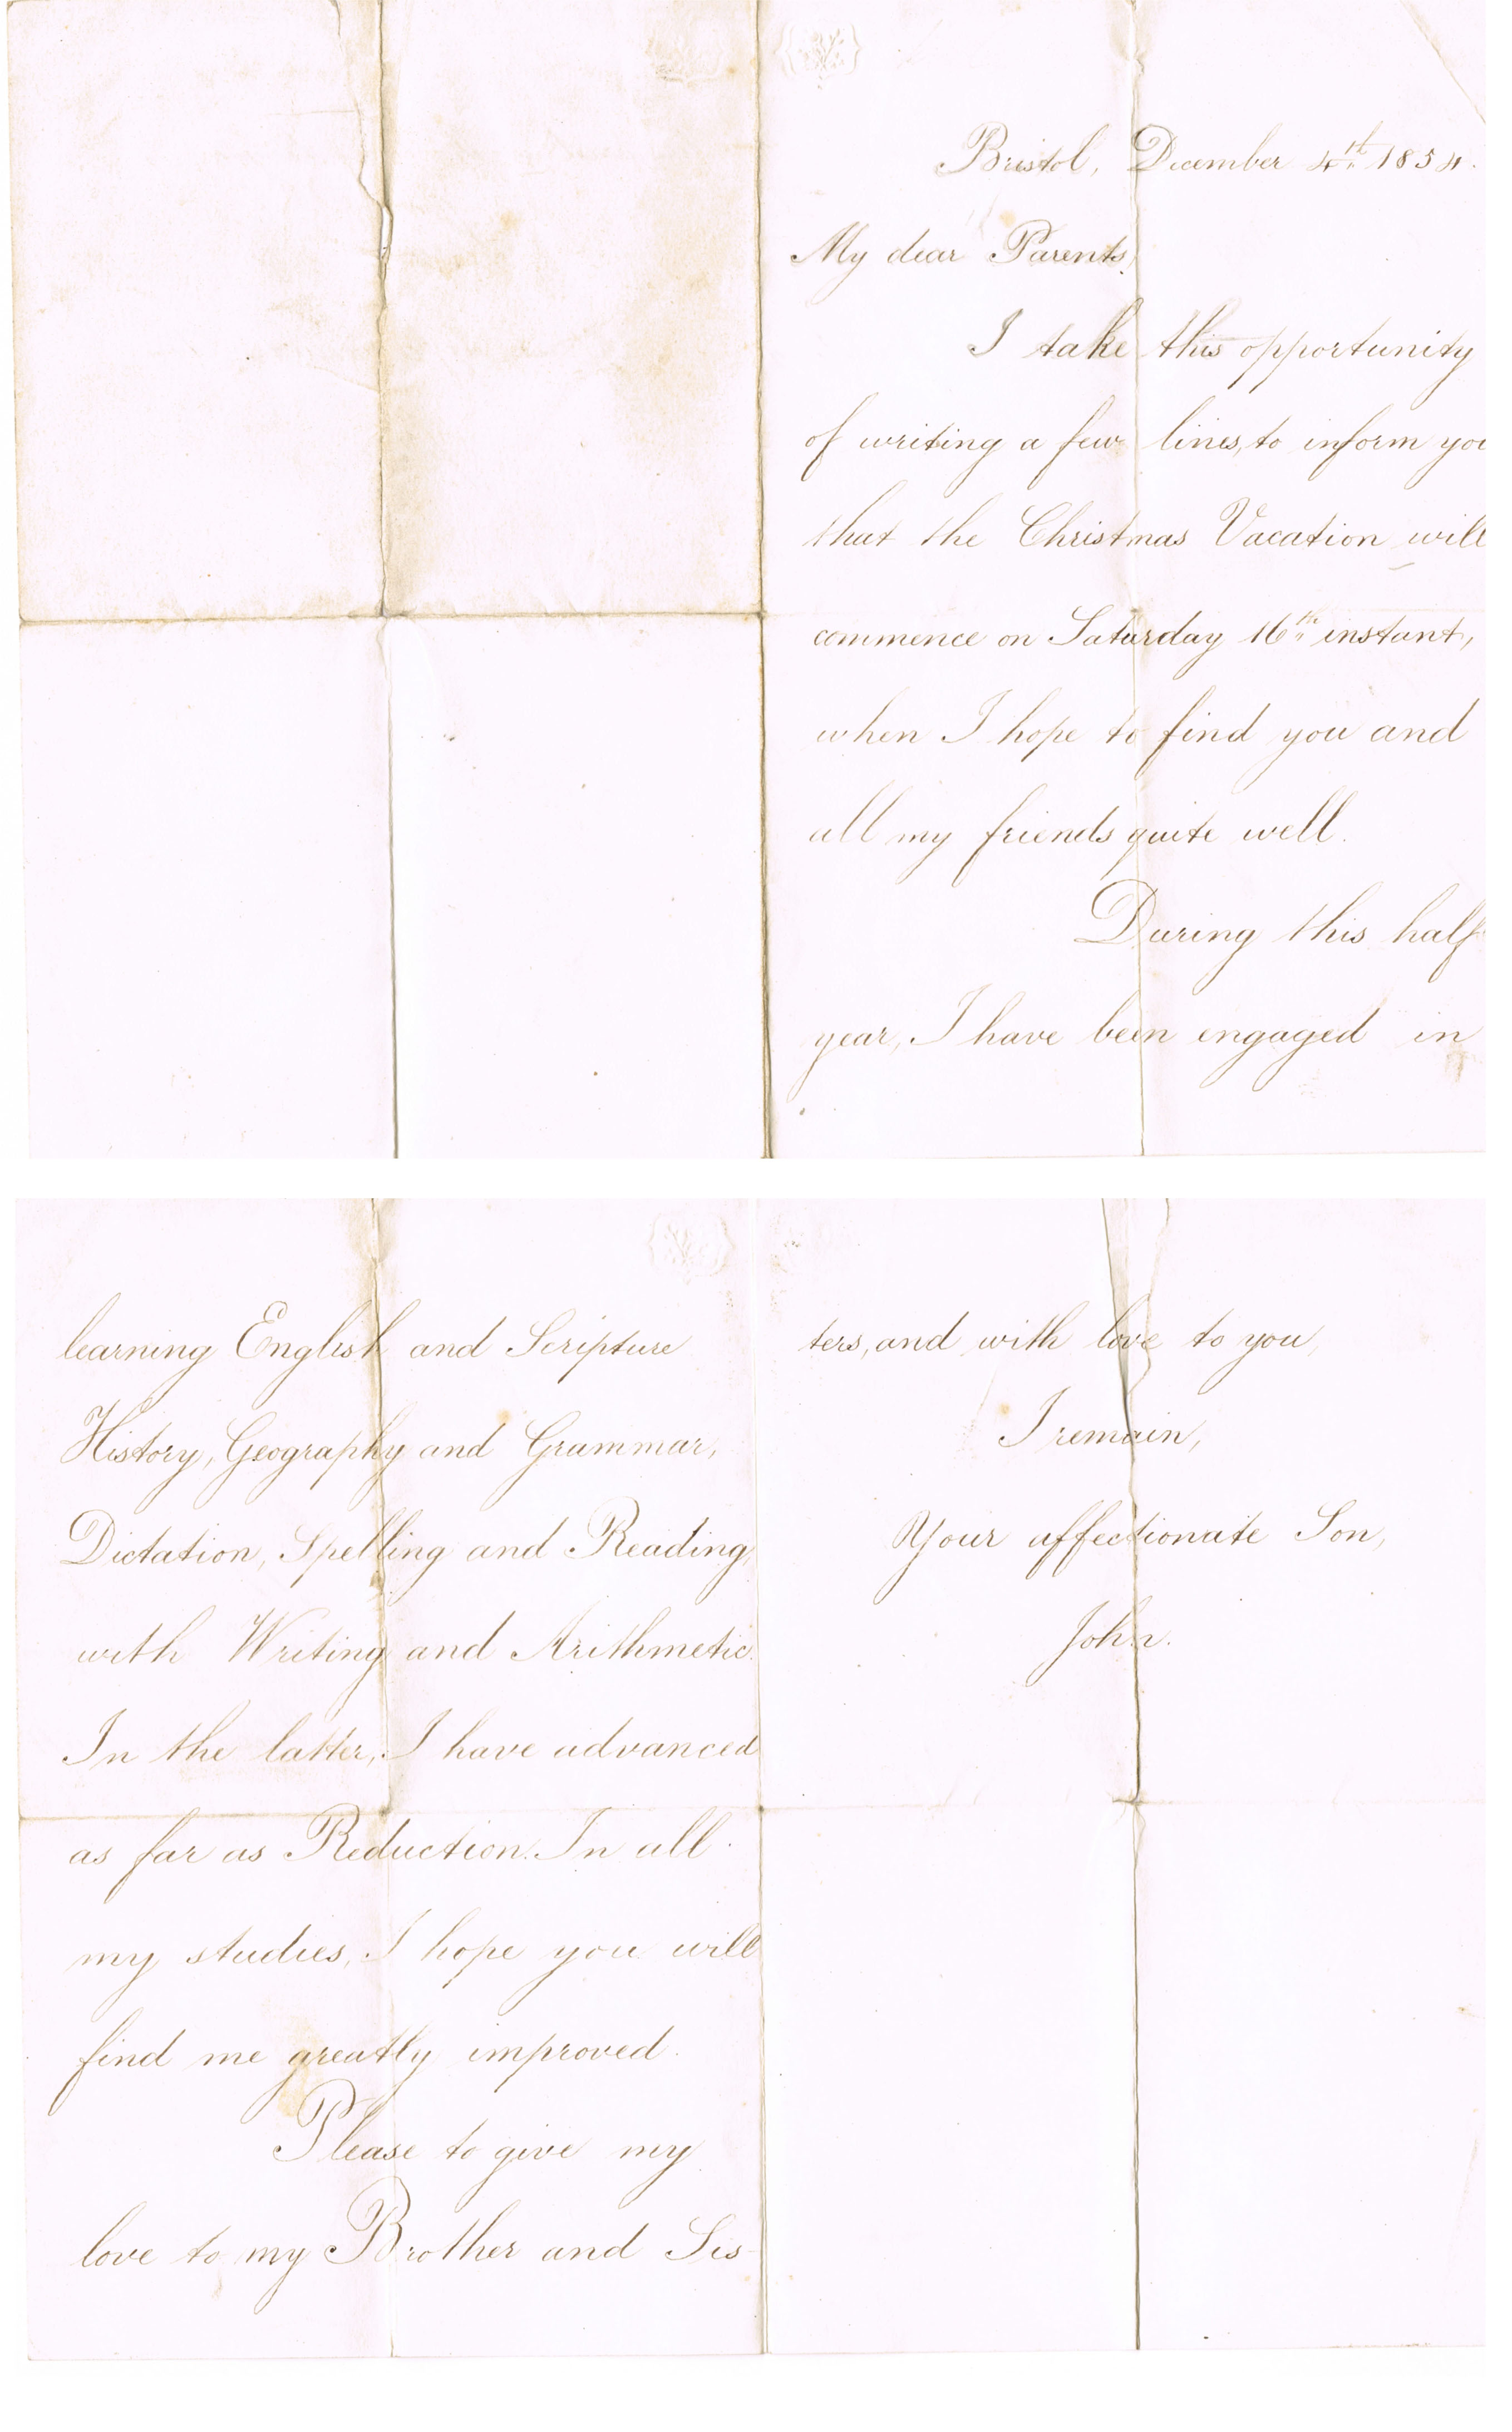 Bristol, December 4th 1854.
My dear Parents,
I take this opportunity
of writing a few lines, to inform you
that the Christmas Vacation will
commence on Saturday 16th instant,
when I hope to find you and
all my friends quite well.
During this half
year, I have been engaged in
learning English and Scripture
History, Geography and Grammar,
Dictation, Spelling and Reading,
with Writing and Arithmetic.
In the latter, I have advanced
as far as Reduction. In all
my studies, I hope you will
find me greatly improved.
Please to give my
love to my Brother and Sis-
ters, and with love to you,
I remain,
Your affectionate Son,
John.